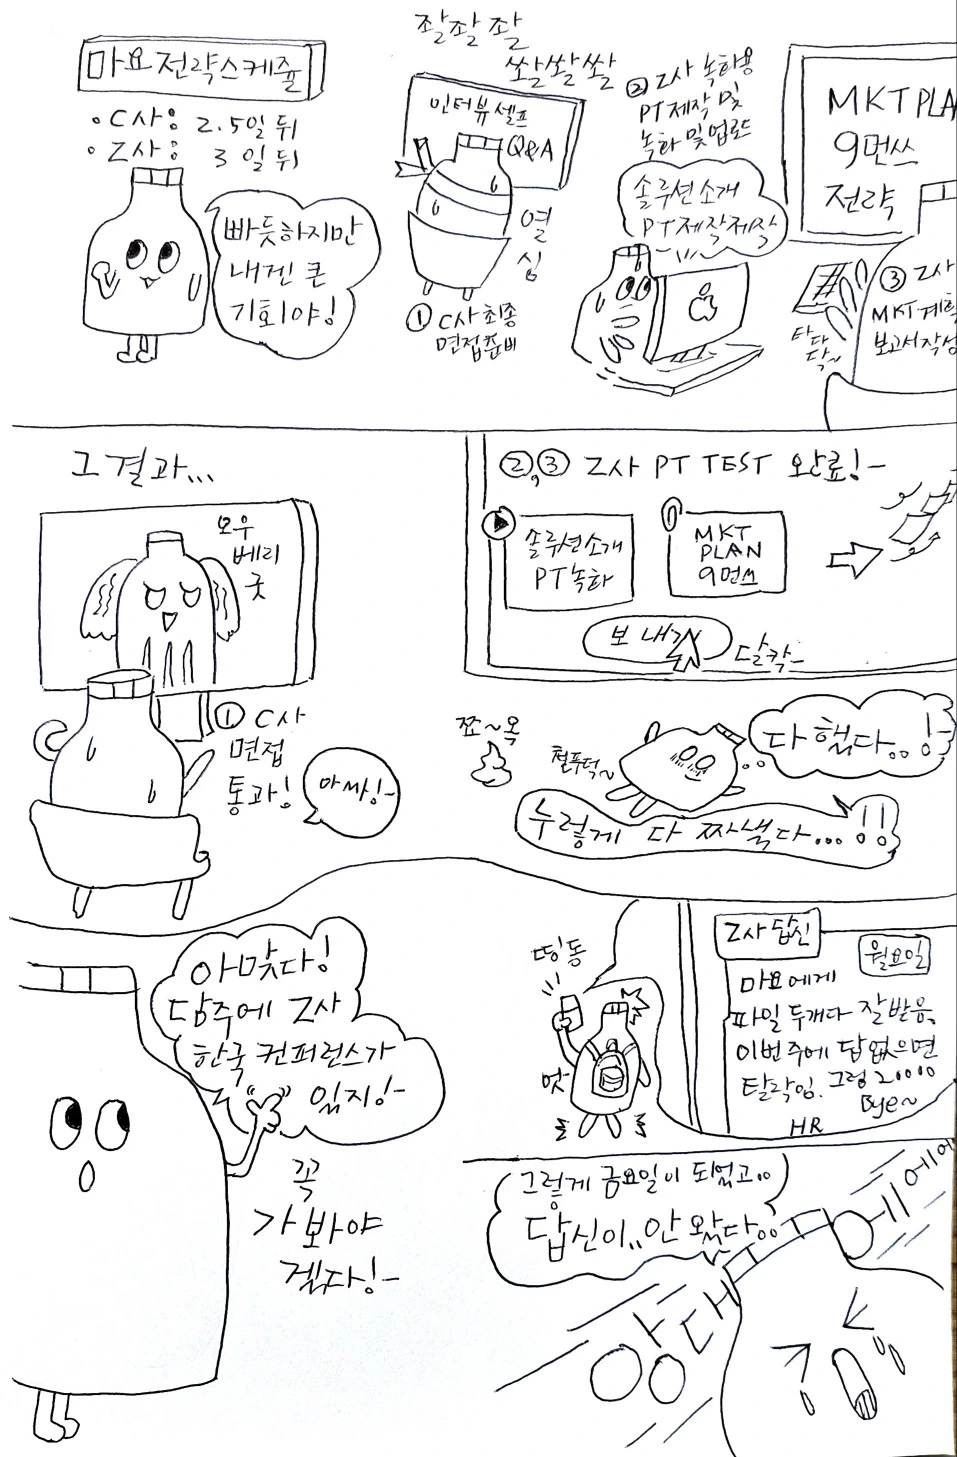 마요전략스케쥴
• C사: 2.5일 뒤
• Z사: 3일 뒤
빠듯하지만
내겐 큰
기회야!
좔좔 좔
쏼쏼쏼
인터뷰 셀프
Q&A
열
심
① C사 최종
면접준비
② Z사 녹화용
PT 제작 및
녹화 및 업로드
솔루션 소개
PT 제작제작
MKT PLA
9먼쓰
전략
③ Z사
MKT 계획
보고서작성
타
다
닥~
그 결과...
오우
베리
굿
① C사
면접
통과!
아싸!-
②,③ Z사 PT TEST 완료!-
솔루션소개
PT녹화
MKT
PLAN
9먼쓰
보내기
달칵-
쪼~옥
철푸덕~
다 했다..!-
누렇게 다 짜냈다...!!
아맞다!
담주에 Z사
한국 컨퍼런스가
있지!-
꼭
가봐야
겠다!-
띵동
엇
Z사 답신
월요일
마요에게
파일 두개다 잘받음.
이번주에 답없으면
탈락임. 그럼 20000
Bye~
HR
그렇게 금요일이 되었고..
답신이..안 왔다..
안돼
에에